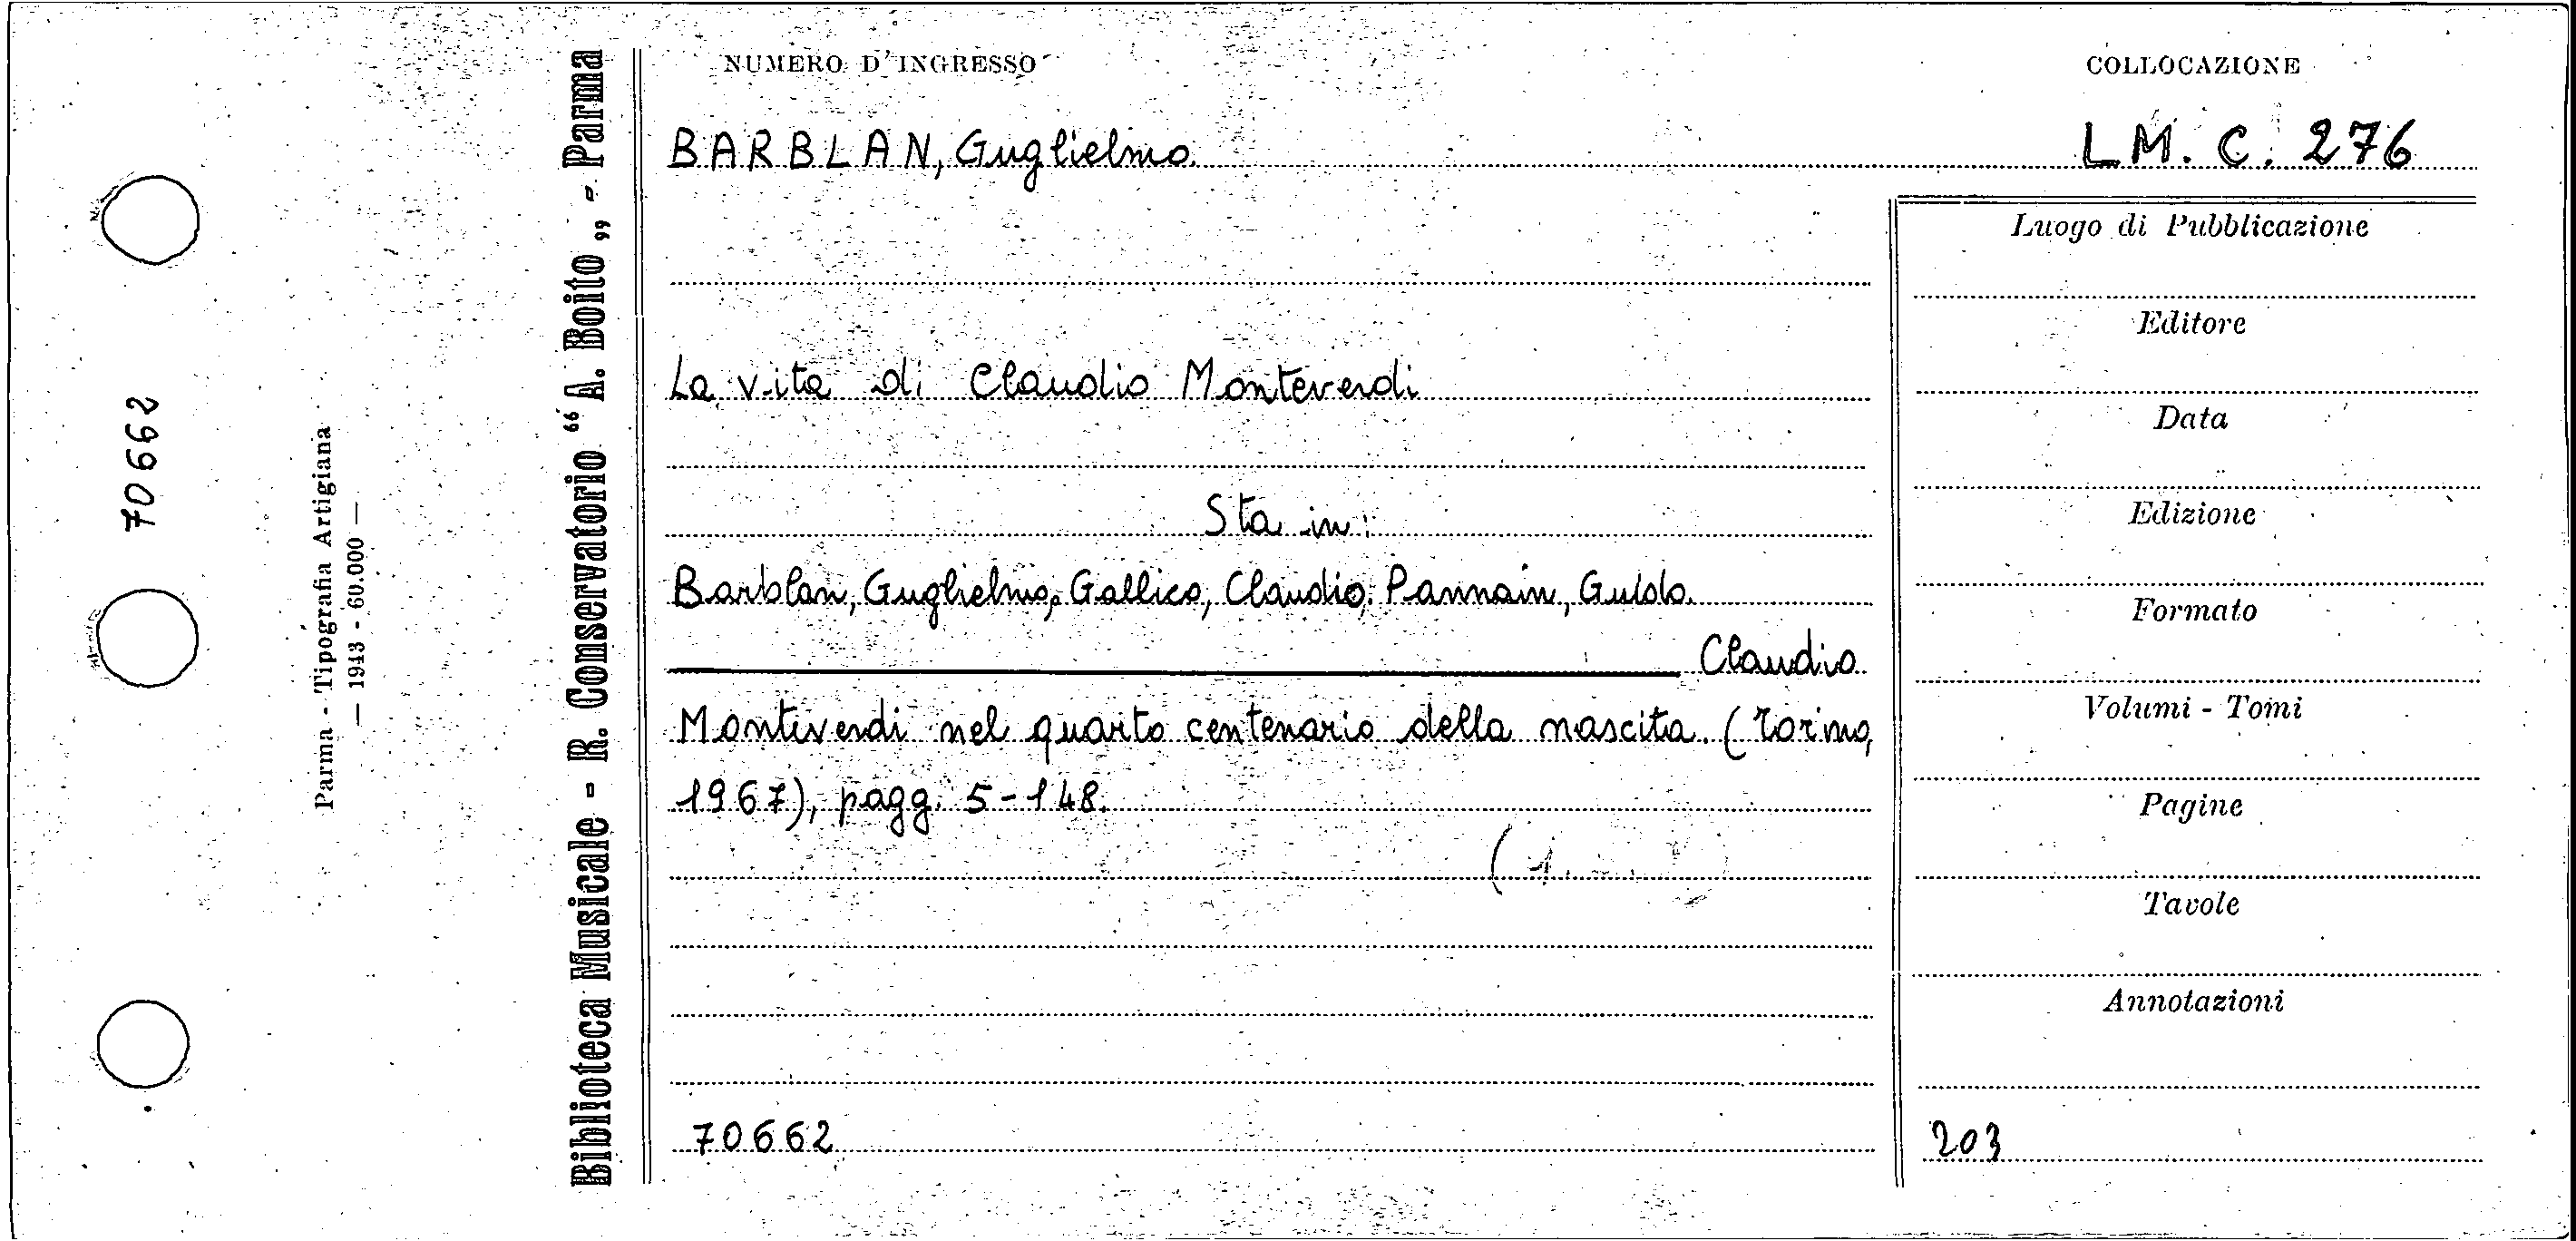 70662
Parma - Tipografia Artigiana
— 1943 - 60.000 —
Biblioteca Musicale - R. Conservatorio “A. Boito„ - Parma
NUMERO D'INGRESSO
COLLOCAZIONE
BARBLAN, Guglielmo.
LM. C. 276
La vita di Claudio Monteverdi
Sta in:
Barblan, Guglielmo, Gallico, Claudio. Pannain, Guido.
Claudio
Monteverdi nel quarto centenario della nascita. (Torino,
1967), pagg. 5-148.
(1.
70662
Luogo di Pubblicazione
Editore
Data
Edizione
Formato
Volumi - Tomi
Pagine
Tavole
Annotazioni
203